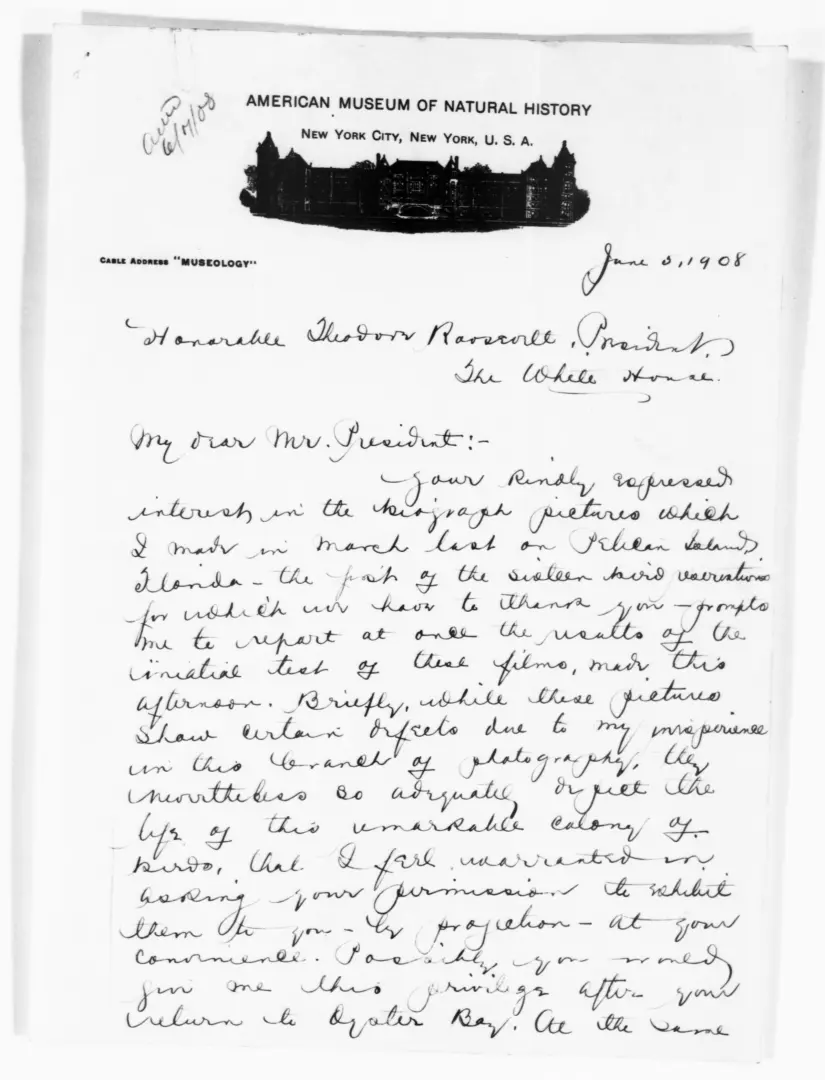 Ackd
6/7/08
AMERICAN MUSEUM OF NATURAL HISTORY
NEW YORK CITY, NEW YORK, U. S. A.
CABLE ADDRESS "MUSEOLOGY"
June 5, 1908
Honorable Theodore Roosevelt, President,
The White House.
My dear Mr. President:-
Your kindly expressed
interest in the biograph pictures which
I made in March last on Pelican Island,
Florida - the first of the sixteen bird reservations
for which we have to thank you - prompts
me to report at once the results of the
iniatial test of these films, made this
afternoon. Briefly, while these pictures
show certain defects due to my inexperience
in this branch of photography, they
nevertheless so adequately depict the
life of this remarkable colony of
birds, that I feel warranted in
asking your permission to exhibit
them to you - by projection - at your
convenience. Possibly you would
give me this privilege after your
return to Oyster Bay. At the same